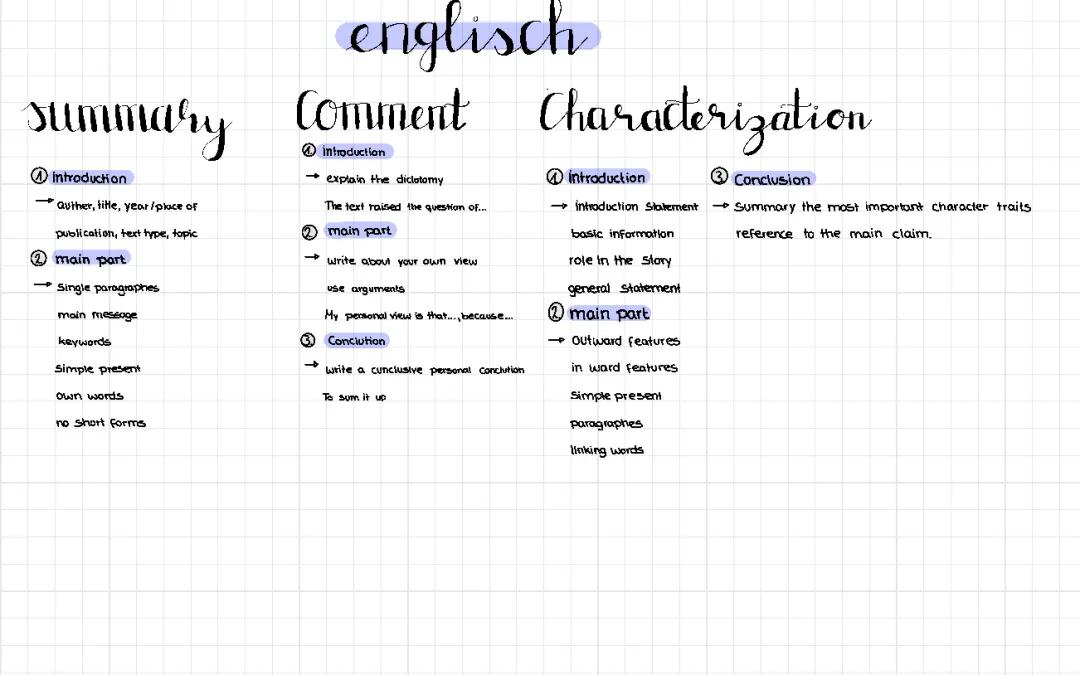 englisch
summary
① introduction
→ auther, title, year/place of
publication, text type, topic
② main part
→ Single paragraphes
main message
keywords
Simple present
own words
no short forms
Comment
① introduction
→ explain the diclotomy
The text raised the question of...
② main part
→ write about your own view
use arguments
My personal view is that...,because...
③ Conclution
→ write a cunclusive personal conclution
To sum it up
Characterization
① introduction
→ introduction Statement
basic information
role in the Story
general Statement
② main part
→ Outward features
in ward features
Simple present
paragraphes
linking words
③ Conclusion
→ Summary the most important character traits
reference to the main claim.